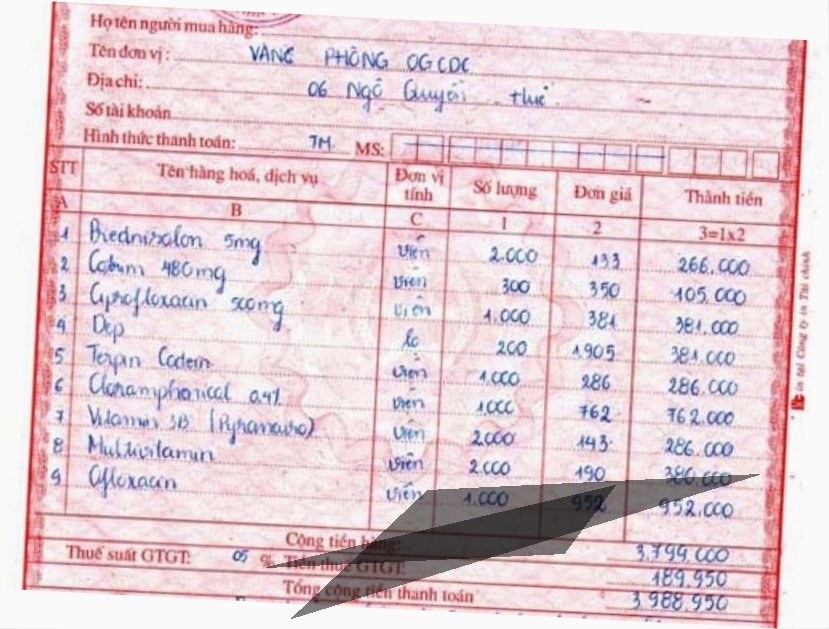 Họ tên người mua hàng:
Tên đơn vị: VĂNG PHÒNG OGCDC
Địa chỉ: 06 Ngô Quyền Huế
Số tài khoản
Hình thức thanh toán: TM. MS:
STT Tên hàng hoá, dịch vụ Đơn vị tính Số lượng Đơn giá Thành tiền
A B C 1 2 3=1x2
1 Prednisolon 5mg viên 2.000 133 266.000
2 Cotrim 480mg viên 300 350 105.000
3 Ciprofloxacin 500mg viên 1.000 381 381.000
4 Dep lo 200 1.905 381.000
5 Terpin Codein viên 1.000 286 286.000
6 Cloramphenical 0.4% viên 1.000 762 762.000
7 Vitamin 3B viên 2000 143 286.000
8 Multivitamin viên 2.000 190 380.000
9 Ofloxacin viên 1.000 952 952.000
Cộng tiền hàng: 3.799.000
Thuế suất GTGT: 05 % Tiền thuế GTGT: 189.950
Tổng cộng tiền thanh toán 3.988.950
in tại Công ty in Tài chính